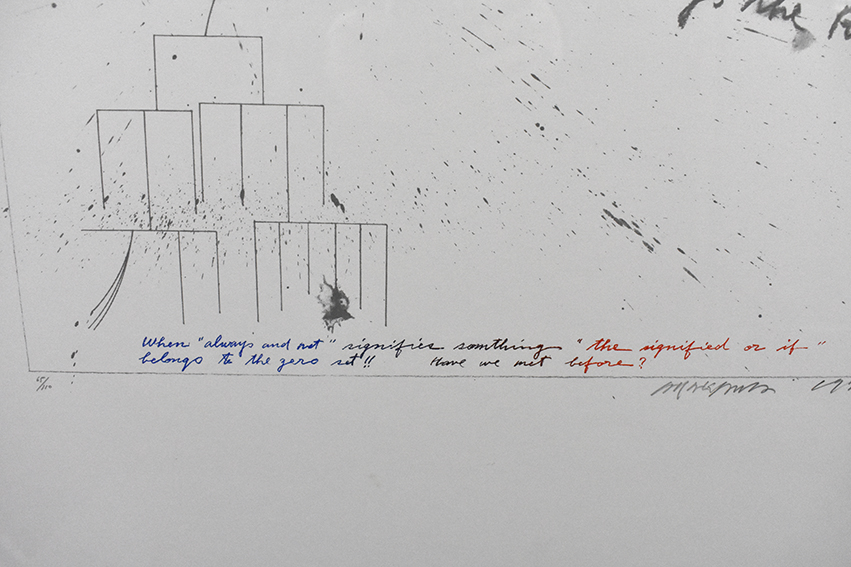 the
When "always and not" signifies somthing "the signified or if"
belongs to the zero set!! Have we met before?